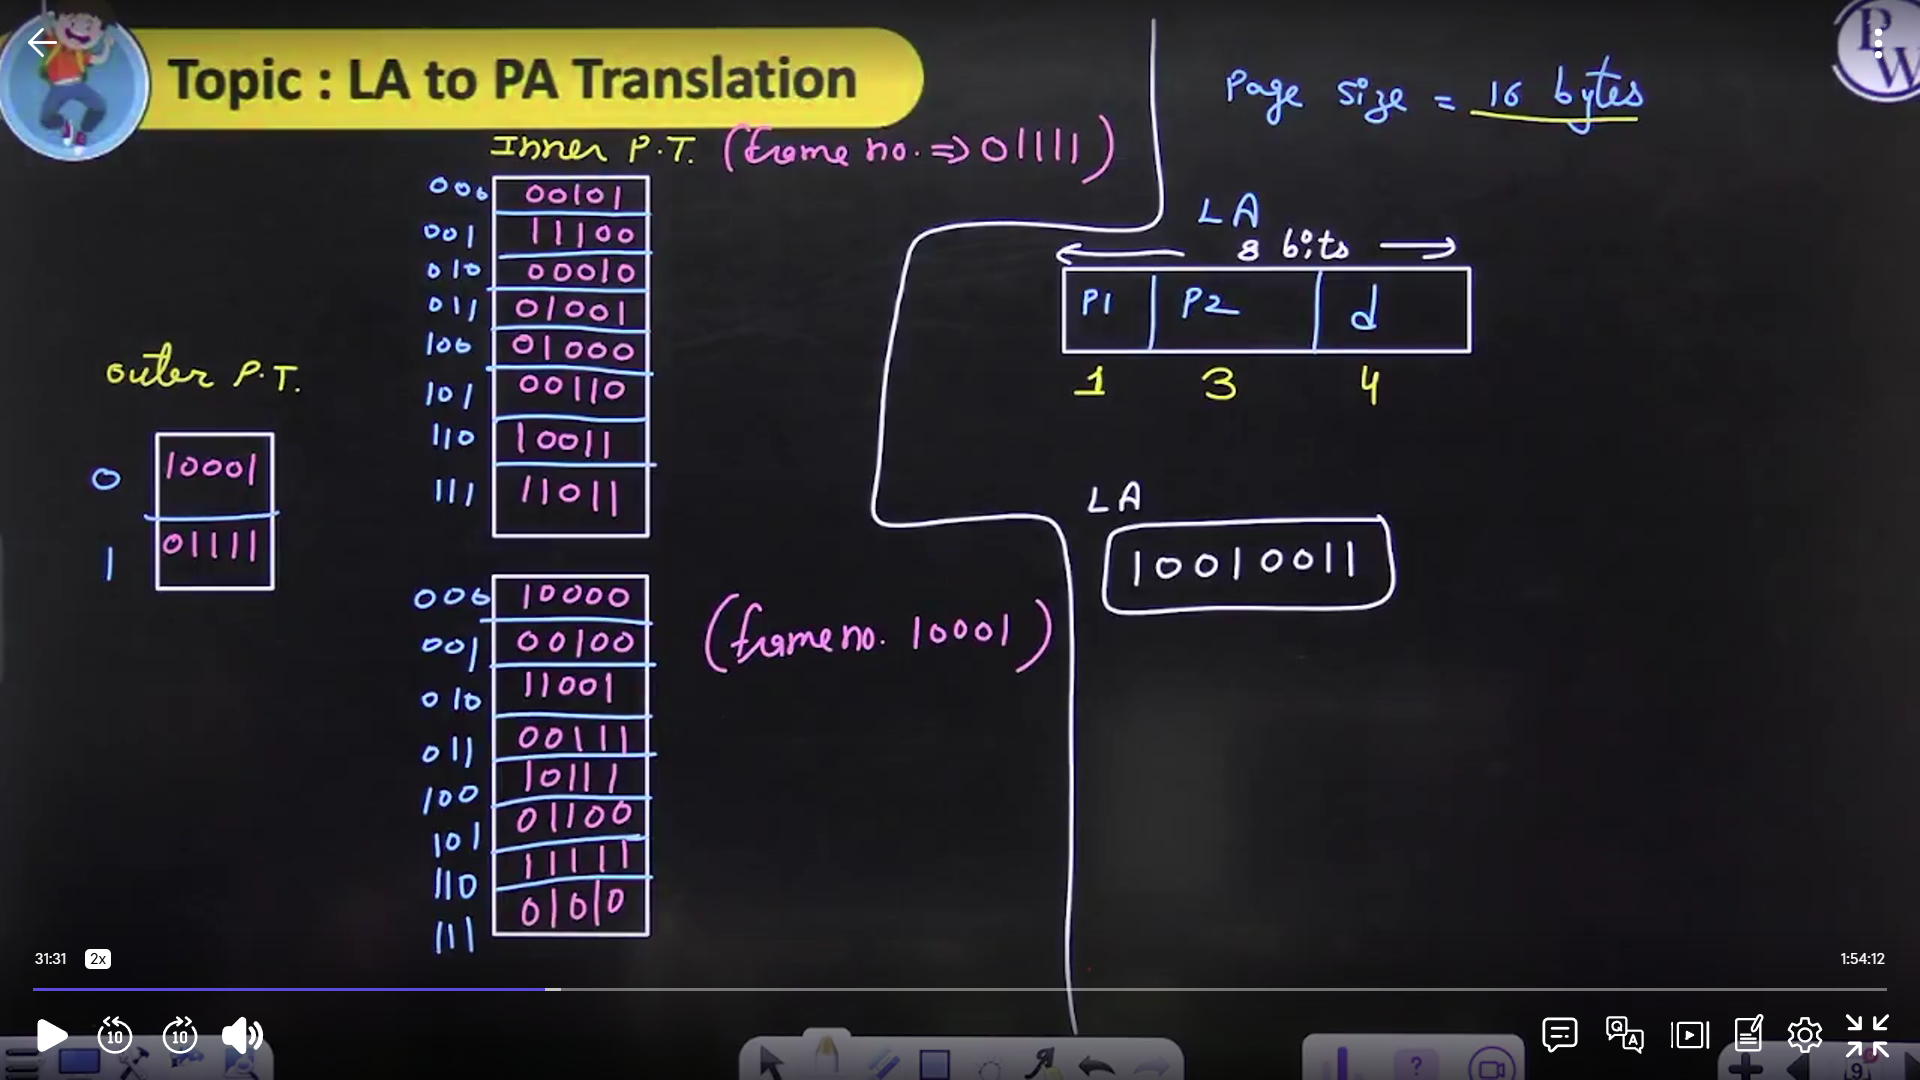 Topic : LA to PA Translation
PW
Page size = 16 bytes
Inner P.T. (frame no. => 01111)
000 00101
001 11100
010 00010
011 01001
100 01000
101 00110
110 10011
111 11011
outer P.T.
0 10001
1 01111
000 10000
001 00100
010 11001
011 00111
100 10111
101 01100
110 11111
111 01010
(frame no. 10001)
LA
8 bits
P1 P2 d
1 3 4
LA
10010011
31:31 2x
1:54:12
10 10